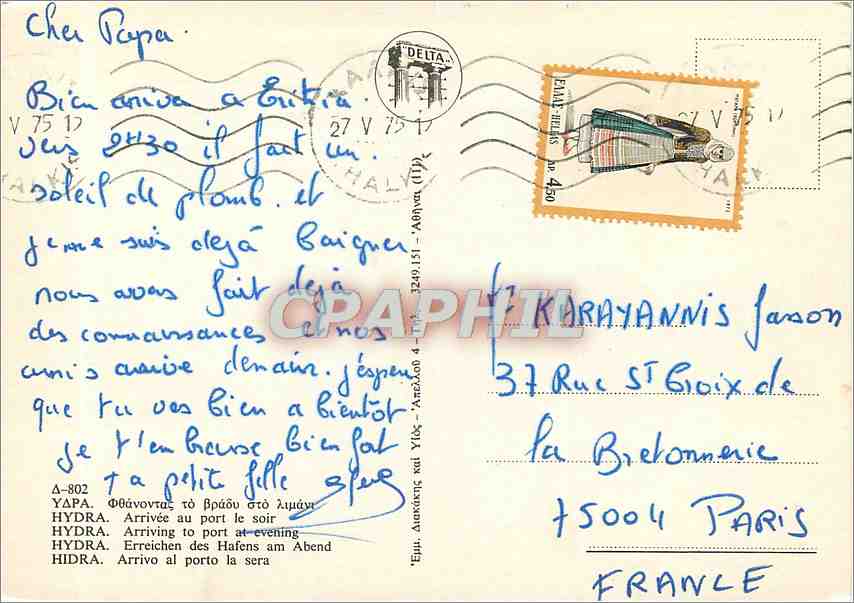 Cher Papa.
Bien arrivee a Eritria.
vers 2H30 il fait un.
soleil de plomb. et
je me suis dejà baigner
nous avons fait dejà
des connaissances et nos
amis arrive demain. j'espere
que tu vas bien a bientôt
je t'embrasse bien fort
ta petite fille
Δ-802
ΥΔΡΑ. Φθάνοντας τὸ βράδυ στὸ λιμάνι
HYDRA. Arrivée au port le soir
HYDRA. Arriving to port at evening
HYDRA. Erreichen des Hafens am Abend
HIDRA. Arrivo al porto la sera
"DELTA"
V 75 12
HALK
27 V 75 12
HALK
27 V 75 12
HALK
ΕΛΛΑΣ-HELLAS
ΔΡ. 4,50
Ἐμμ. Διακάκης καὶ Υἱός - Ἀπελλοῦ 4 - Τηλ. 3249.151 - Ἀθῆναι (11)
CPAPHIL
KARAYANNIS Jason
37 Rue St Croix de
la Bretonnerie
75004 PARIS
FRANCE